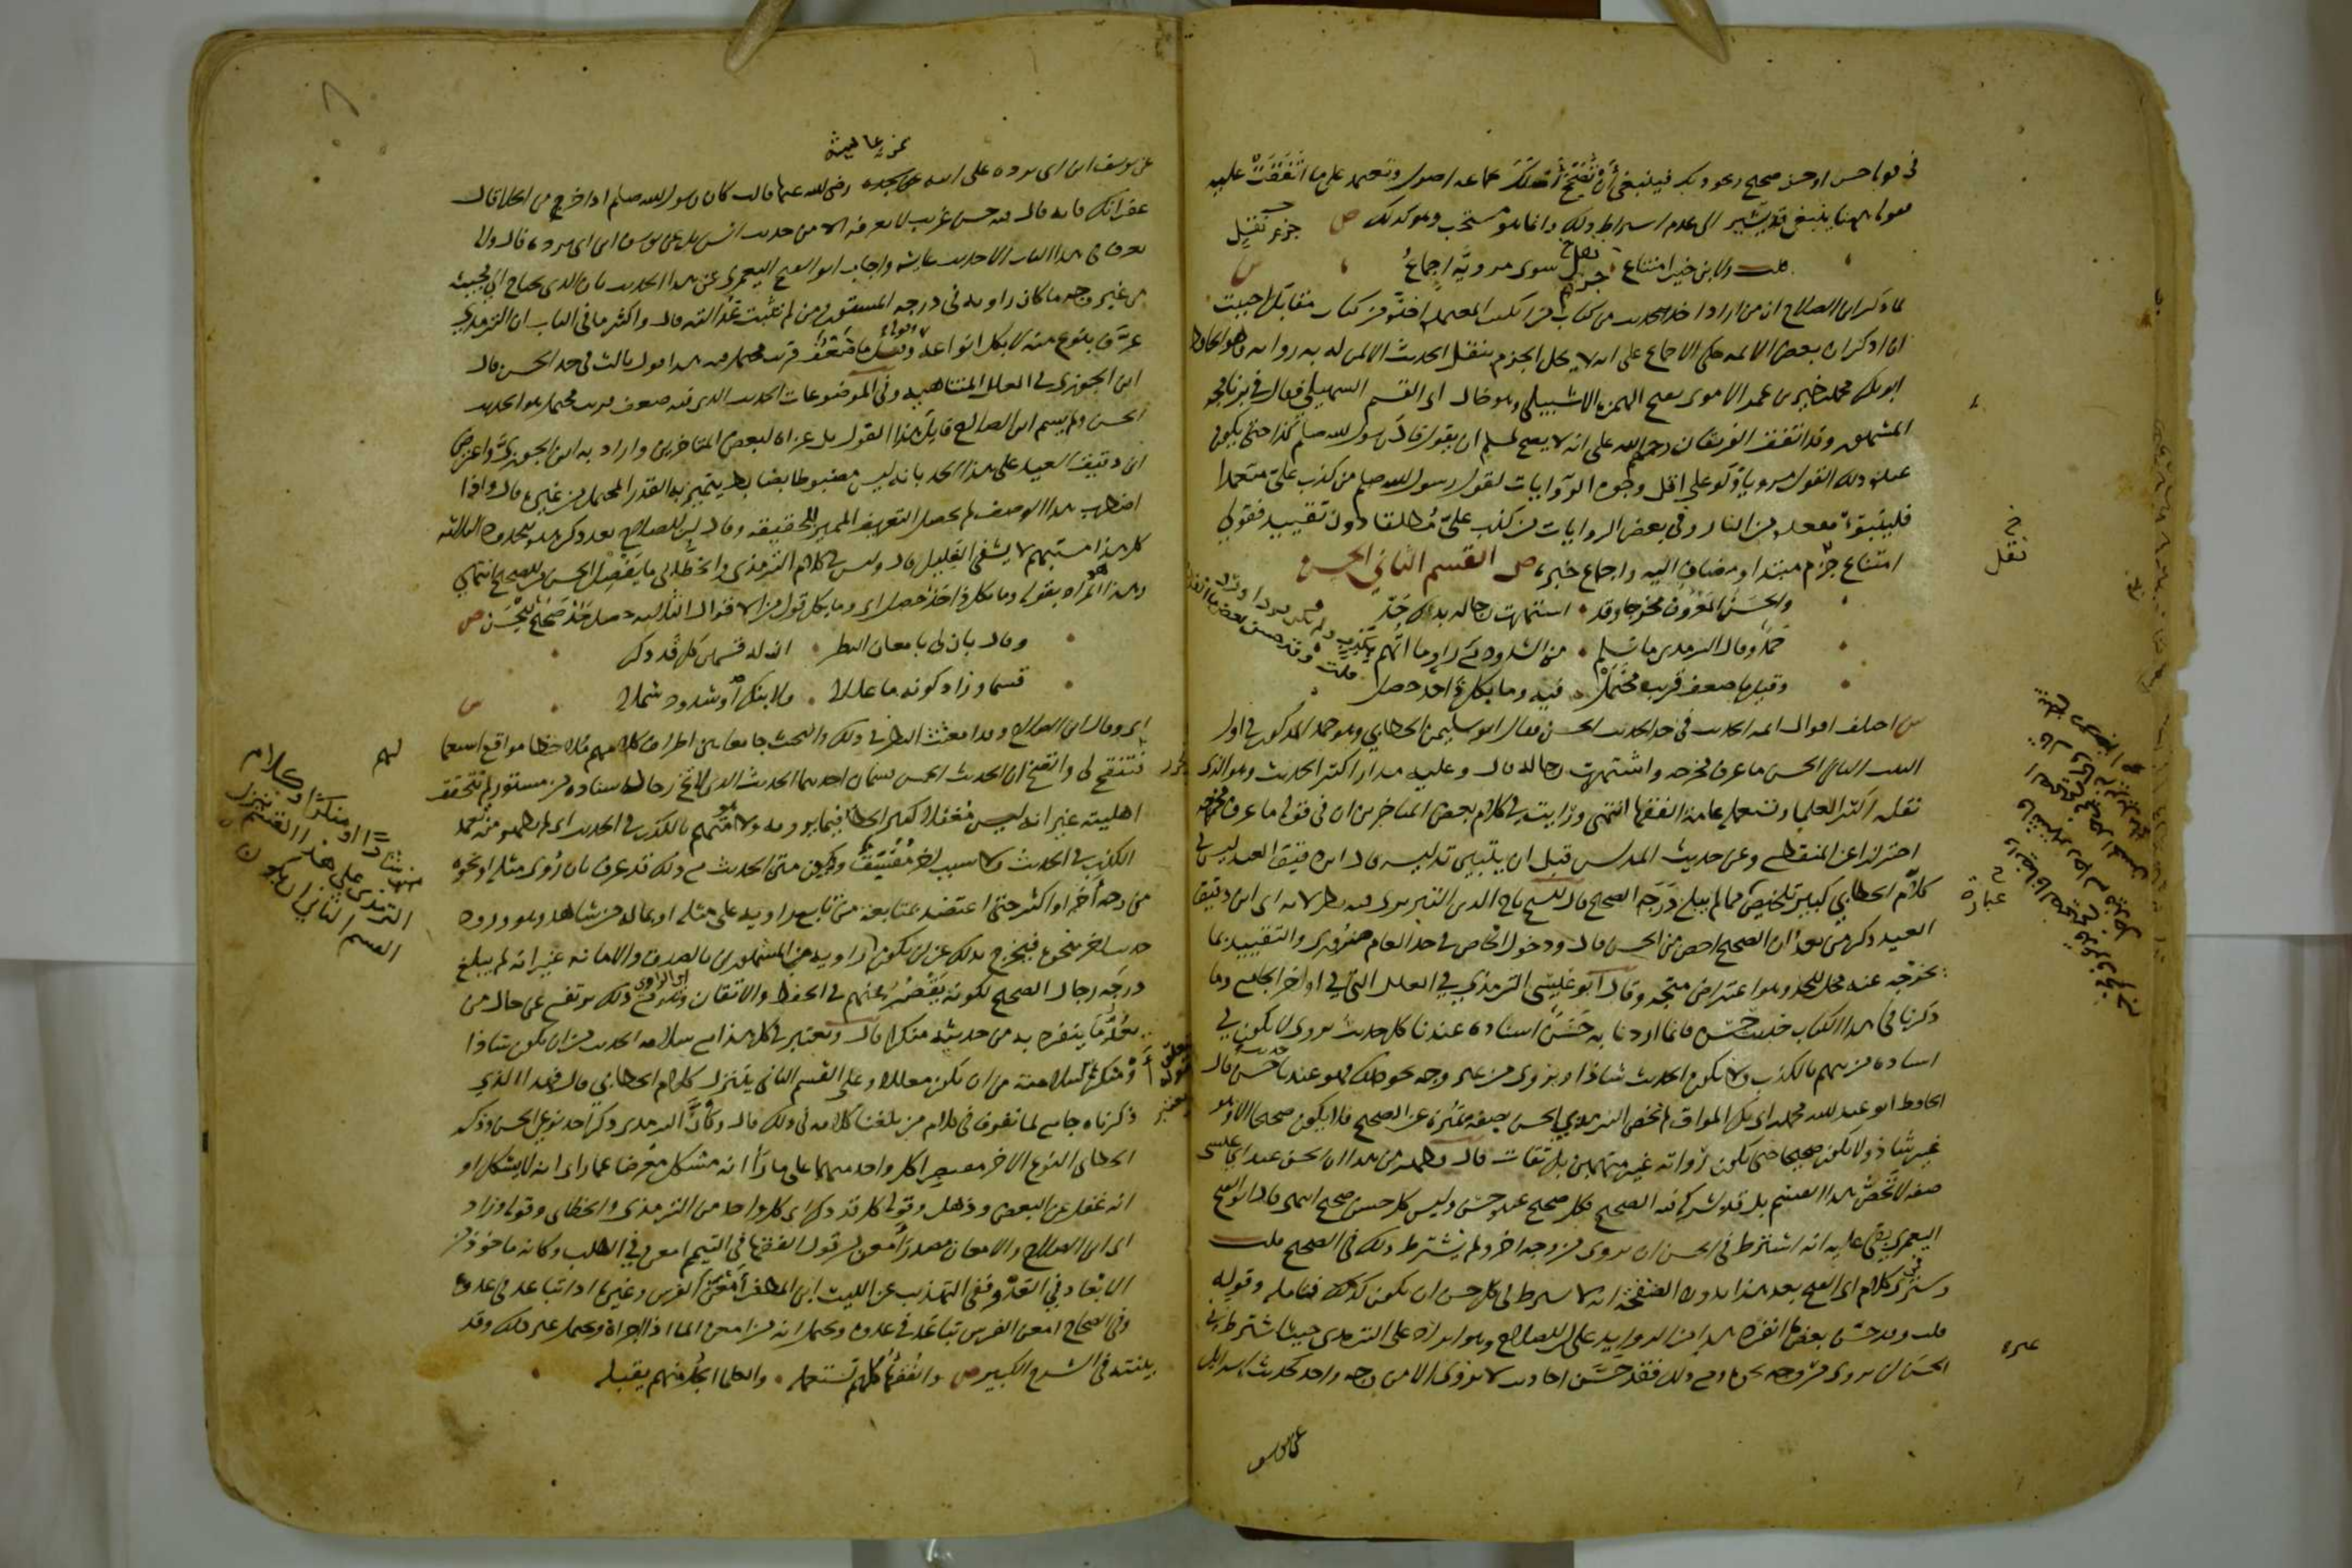 في قولنا حسن او حسن صحيح ونحو ذلك فينبغي أن تُصحِّح أصلك بجماعه اصول وتعتمد على ما اتَّفَقَتْ عليه
فقوله هنا ينبغي قد يشير الى عدم اشتراط ذلك وانما هو مستحب وهو كذلك ص
قلت ولابن خير امتناع جزم سوى مرويّه اجماعُ
لما ذكر ابن الصلاح ان من اراد اخذ الحديث من كتاب من الكتب المعتمدة اخذه من كتاب مقابل احببت
ان اذكر ان بعض الائمه حكى الاجماع على انه لا يحل الجزم بنقل الحديث الا لمن له به روايه وهو الحافظ
ابو بكر محمد بن خير بن عمر الاموي بفتح الهمزه الاشبيلي وهو خال ابي القسم السهيلي فقال في برنامجه
المشهور وقد اتفق العلما رحمهم الله على انه لا يصح لمسلم ان يقول قال رسول الله صلم كذا حتى يكون
عنده ذلك القول مرويا ولو على اقل وجوه الروايات لقول رسول الله صلم من كذب عليّ متعمدا
فليتبوّأ مقعده من النار وفي بعض الروايات من كذب عليّ مُطلقا دون تقييد فقولي
امتناع جزم مبتدا ومضاف اليه واجماع خبره ص القسم الثاني الحسن
والحسن المعروف مخرجا وقد استهرت رجاله بذاك حَدّ
حَمدٌ وقال الترمذي ما سلم من الشذوذ مع راوٍ ما اتُّهم
وقيل ما ضعف قريب محتمل فيه وما بكل ذا حَدٌّ حصل
ش اختلف اقوال ائمه الحديث في حد الحديث الحسن فقال ابو سليمن الخطابي وهو حمد المذكور في اول
البيت الثاني الحسن ما عرف مخرجه واشتهرت رجاله قال وعليه مدار اكثر الحديث وهو الذي
نقله اكثر العلما وتستعمله عامة الفقها انتهى ورايت في كلام بعض المتاخرين ان في قوله ما عرف مخرجه
احترازا عن المنقطع وعن حديث المدلس قبل ان يتبين تدليسه قال ابن دقيق العيد ليس في
كلام الخطابي كبير تلخيص
العيد ذكر من بعدُ ان الصحيح اخص من الحسن قال ودخول الخاص في حد العام ضروري والتقييد بما
يخرجه عنه مخل للحد وهو اعتراض متجه وقال ابو عيسى الترمذي في العلل التي في اواخر الجامع وما
ذكرنا في هذا الكتاب حديث حسن فانما اردنا به حُسن اسناده عندنا كل حديث يروى لا يكون في
اسناده من يتهم بالكذب ولا يكون الحديث شاذا ويروى من غير وجه نحو ذلك فهو عندنا حديث حسن قال
الحافظ ابو عبد الله محمد بن ابي بكر المواق لم يخص الترمذي الحسن بصفة تميزه عن الصحيح فلا يكون صحيحا الا وهو
غير شاذ ولا يكون صحيحا حتى تكون رُواته غير متهمين بل ثقات قال فظهر من هذا ان الحسن عند ابي عيسى
صفه لا تخصّ هذا القسم بل قد يشركه فيه الصحيح فكل صحيح عنده حسن وليس كل حسن صحيح انتهى قال ابو الفتح
اليعمري بقي عليه انه اشترط في الحسن ان يروى من وجه اخر ولم يشترط ذلك في الصحيح قلت
وسترى في كلام ابي الفتح بعد هذا بدون الصفحة انه لا يشترط في كل حسن ان يكون كذلك فتامله وقوله
قلت وقد حسّن بعض ما انفرد هذا من الزوايد على ابن الصلاح وهو ايراد على الترمذي حيث اشترط في
الحسن ان يروى من وجه نحوه ومع ذلك فقد حَسَّن احاديث لا تروى الا من وجه واحد كحديث اسرايل
نقل
عبارة
عن يوسف ابن ابي برده عن ابيه عن عايشه رضي الله عنها قالت كان رسول الله صلم اذا خرج من الخلا قال
غفرانك فانه قال فيه حسن غريب لا نعرفه الا من حديث اسرايل عن يوسف ابن ابي برده قال ولا
نعرف في هذا الباب الا حديث عايشه واجاب ابو الفتح اليعمري عن هذا الحديث بان الذي يحتاج الى مجيئه
من غير وجه ما كان راويه في درجه المستور ومن لم تثبت عدالته قال واكثر ما في الباب ان الترمذي
عرّف بنوع منه لا بكل انواعه وقوله وقيل ما ضعفٌ قريب محتمل فيه هذا قول ثالث في حد الحسن قال
ابن الجوزي في العلل المتناهيه وفي الموضوعات الحديث الذي فيه ضعف قريب محتمل هو الحديث
الحسن ولم يسم ابن الصلاح قايل هذا القول بل عزاه لبعض المتاخرين واراد به ابن الجوزي واعترض
ابن دقيق العيد على هذا الحد بانه ليس مضبوطا بضابط يتميز به القدر المحتمل من غيره قال واذا
اضطرب هذا الوصف لم يحصل التعريف المميز للحقيقه وقال ابن الصلاح بعد ذكر هذه الحدود الثلاثه
كل هذا مستبهم لا يشفي الغليل قال وليس في كلام الترمذي والخطابي ما يفصل الحسن من الصحيح انتهى
وهذا المراد بقوله وما بكل ذا حَدٌّ حصل اي وما بكل قول من الاقوال الثلاثه حصل حد صحيح للحسن ص
وقال بان لي بامعان النظر ان له قسمين كل قد ذكر
قسما وزاد كونه ما عللا ولا بنكر أو شذوذ شملا
اي وقال ابن الصلاح وقد امعنتُ النظر في ذلك والبحث جامعا بين اطراف كلامهم ملاحظا مواقع استعمالهم
فتنقح لي واتضح ان الحديث الحسن قسمان احدهما الحديث الذي لا تخلو رجال اسناده من مستور لم تتحقق
اهليته غير انه ليس مُغفلا كثير الخطا فيما يرويه ولا هو متهم بالكذب في الحديث اي لم يظهر منه تعمد
الكذب في الحديث ولا سبب اخر مُفسّق ويكون متن الحديث مع ذلك قد عرف بان رُوي مثله او نحوه
من وجه آخر او اكثر حتى اعتضد بمتابعة من تابع راويه على مثله او بما له من شاهد وهو ورود
حديث اخر بنحوه فيخرج بذلك عن ان يكون شاذا او منكرا وكلام الترمذي على هذا القسم يتنزل القسم الثاني ان يكون راويه من المشهورين بالصدق والامانه غير انه لم يبلغ
درجة رجال الصحيح لكونه يَقْصُر عنهم في الحفظ والاتقان وهو مع ذلك يرتفع عن حال من
يُعدّ ما ينفرد به من حديثه منكرا قال ويعتبر في كل هذا مع سلامه الحديث من ان يكون شاذا
أو منكرا سلامته من ان يكون معللا وعلى القسم الثاني يتنزل كلام الخطابي قال فهذا الذي
ذكرناه جامع لما تفرق في كلام من بلغنا كلامه في ذلك قال وكأنّ الترمذي ذكر احد نوعي الحسن وذكر
الخطابي النوع الاخر مقتصرا كل واحد منهما على ما راى انه مشكل معرضا عما راى انه لا يشكل او
انه غفل عن البعض وذهل وقوله كل قد ذكر اي كل واحد من الترمذي والخطابي وقوله وزاد
اي ابن الصلاح والامعان مصدر أمعن من قول الفقها في التيمم امعن في الطلب وكانه ماخوذ من
الابعاد في العَدْو ففي التهذيب عن الليث ابن المظفر أمعن الفرس وغيره اذا تباعد في عدوه
وفي الصحاح امعن الفرس تباعد في عدوه ويحتمل انه من امعن الما اذا اجراه ويحتمل غير ذلك وقد
بينته في الشرح الكبير ص والفقها كلهم تستعمله والعلما الجُلّ منهم يقبله